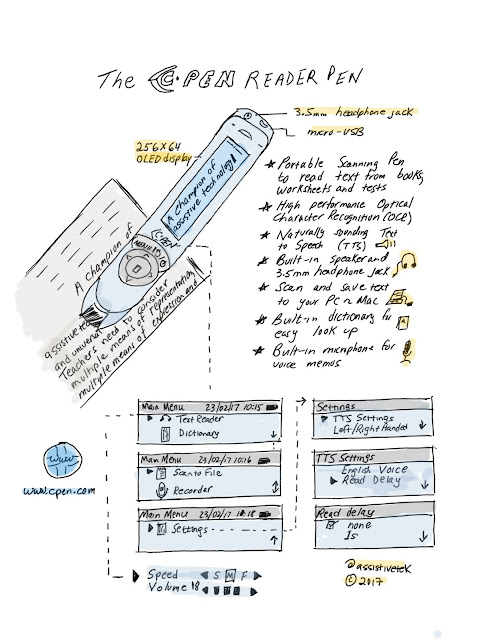 The C·PEN READER PEN
3.5mm headphone jack
micro-USB
256x64
OLED display
A champion of
assistive technology
C·PEN
MENU
A champion of
assistive tec
and universal
Teachers need to consider
multiple means of representation,
multiple means of expression and
★ Portable Scanning Pen
to read text from books,
worksheets and tests
★ High performance Optical
Character Recognition (OCR)
★ Naturally sounding Text
to Speech (TTS)
★ Built-in speaker and
3.5mm headphone jack
★ Scan and save text
to your PC ~ Mac
★ Built-in dictionary for
easy look up
★ Built-in microphone for
voice memos
Main Menu 23/02/17 10:15
Text Reader
Dictionary
Main Menu 23/02/17 10:16
Scan to File
Recorder
Main Menu 23/02/17 10:18
Settings
Settings
TTS Settings
Left/Right Handed
TTS Settings
English Voice
Read Delay
Read delay
none
1s
www
www.cpen.com
Speed S M F
Volume
@assistivetek
© 2017